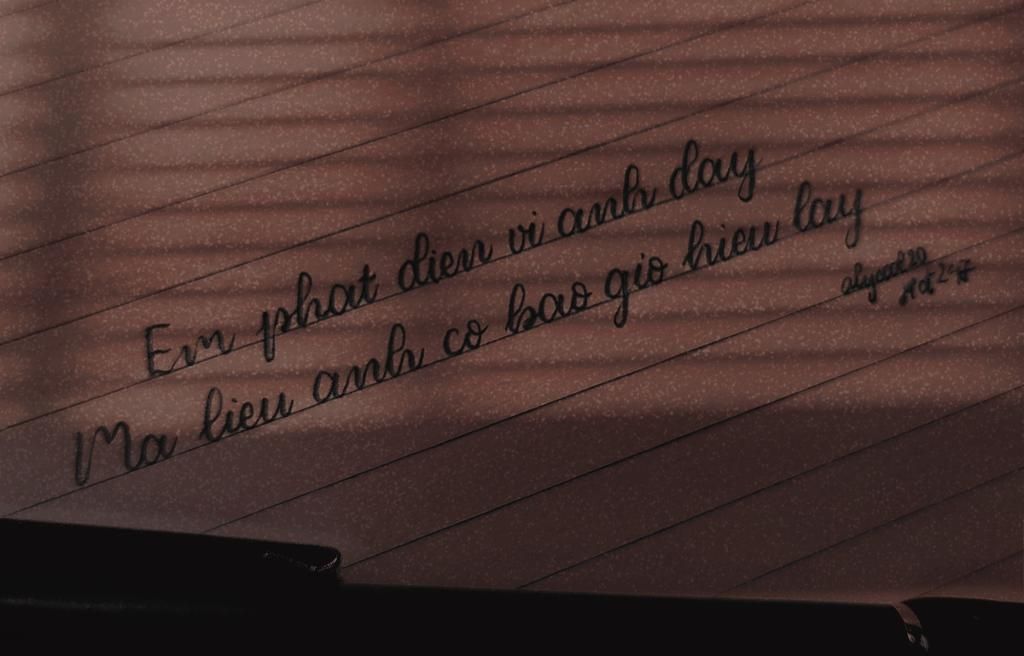 Em phat dien vi anh day
Ma lieu anh co bao gio hieu lay